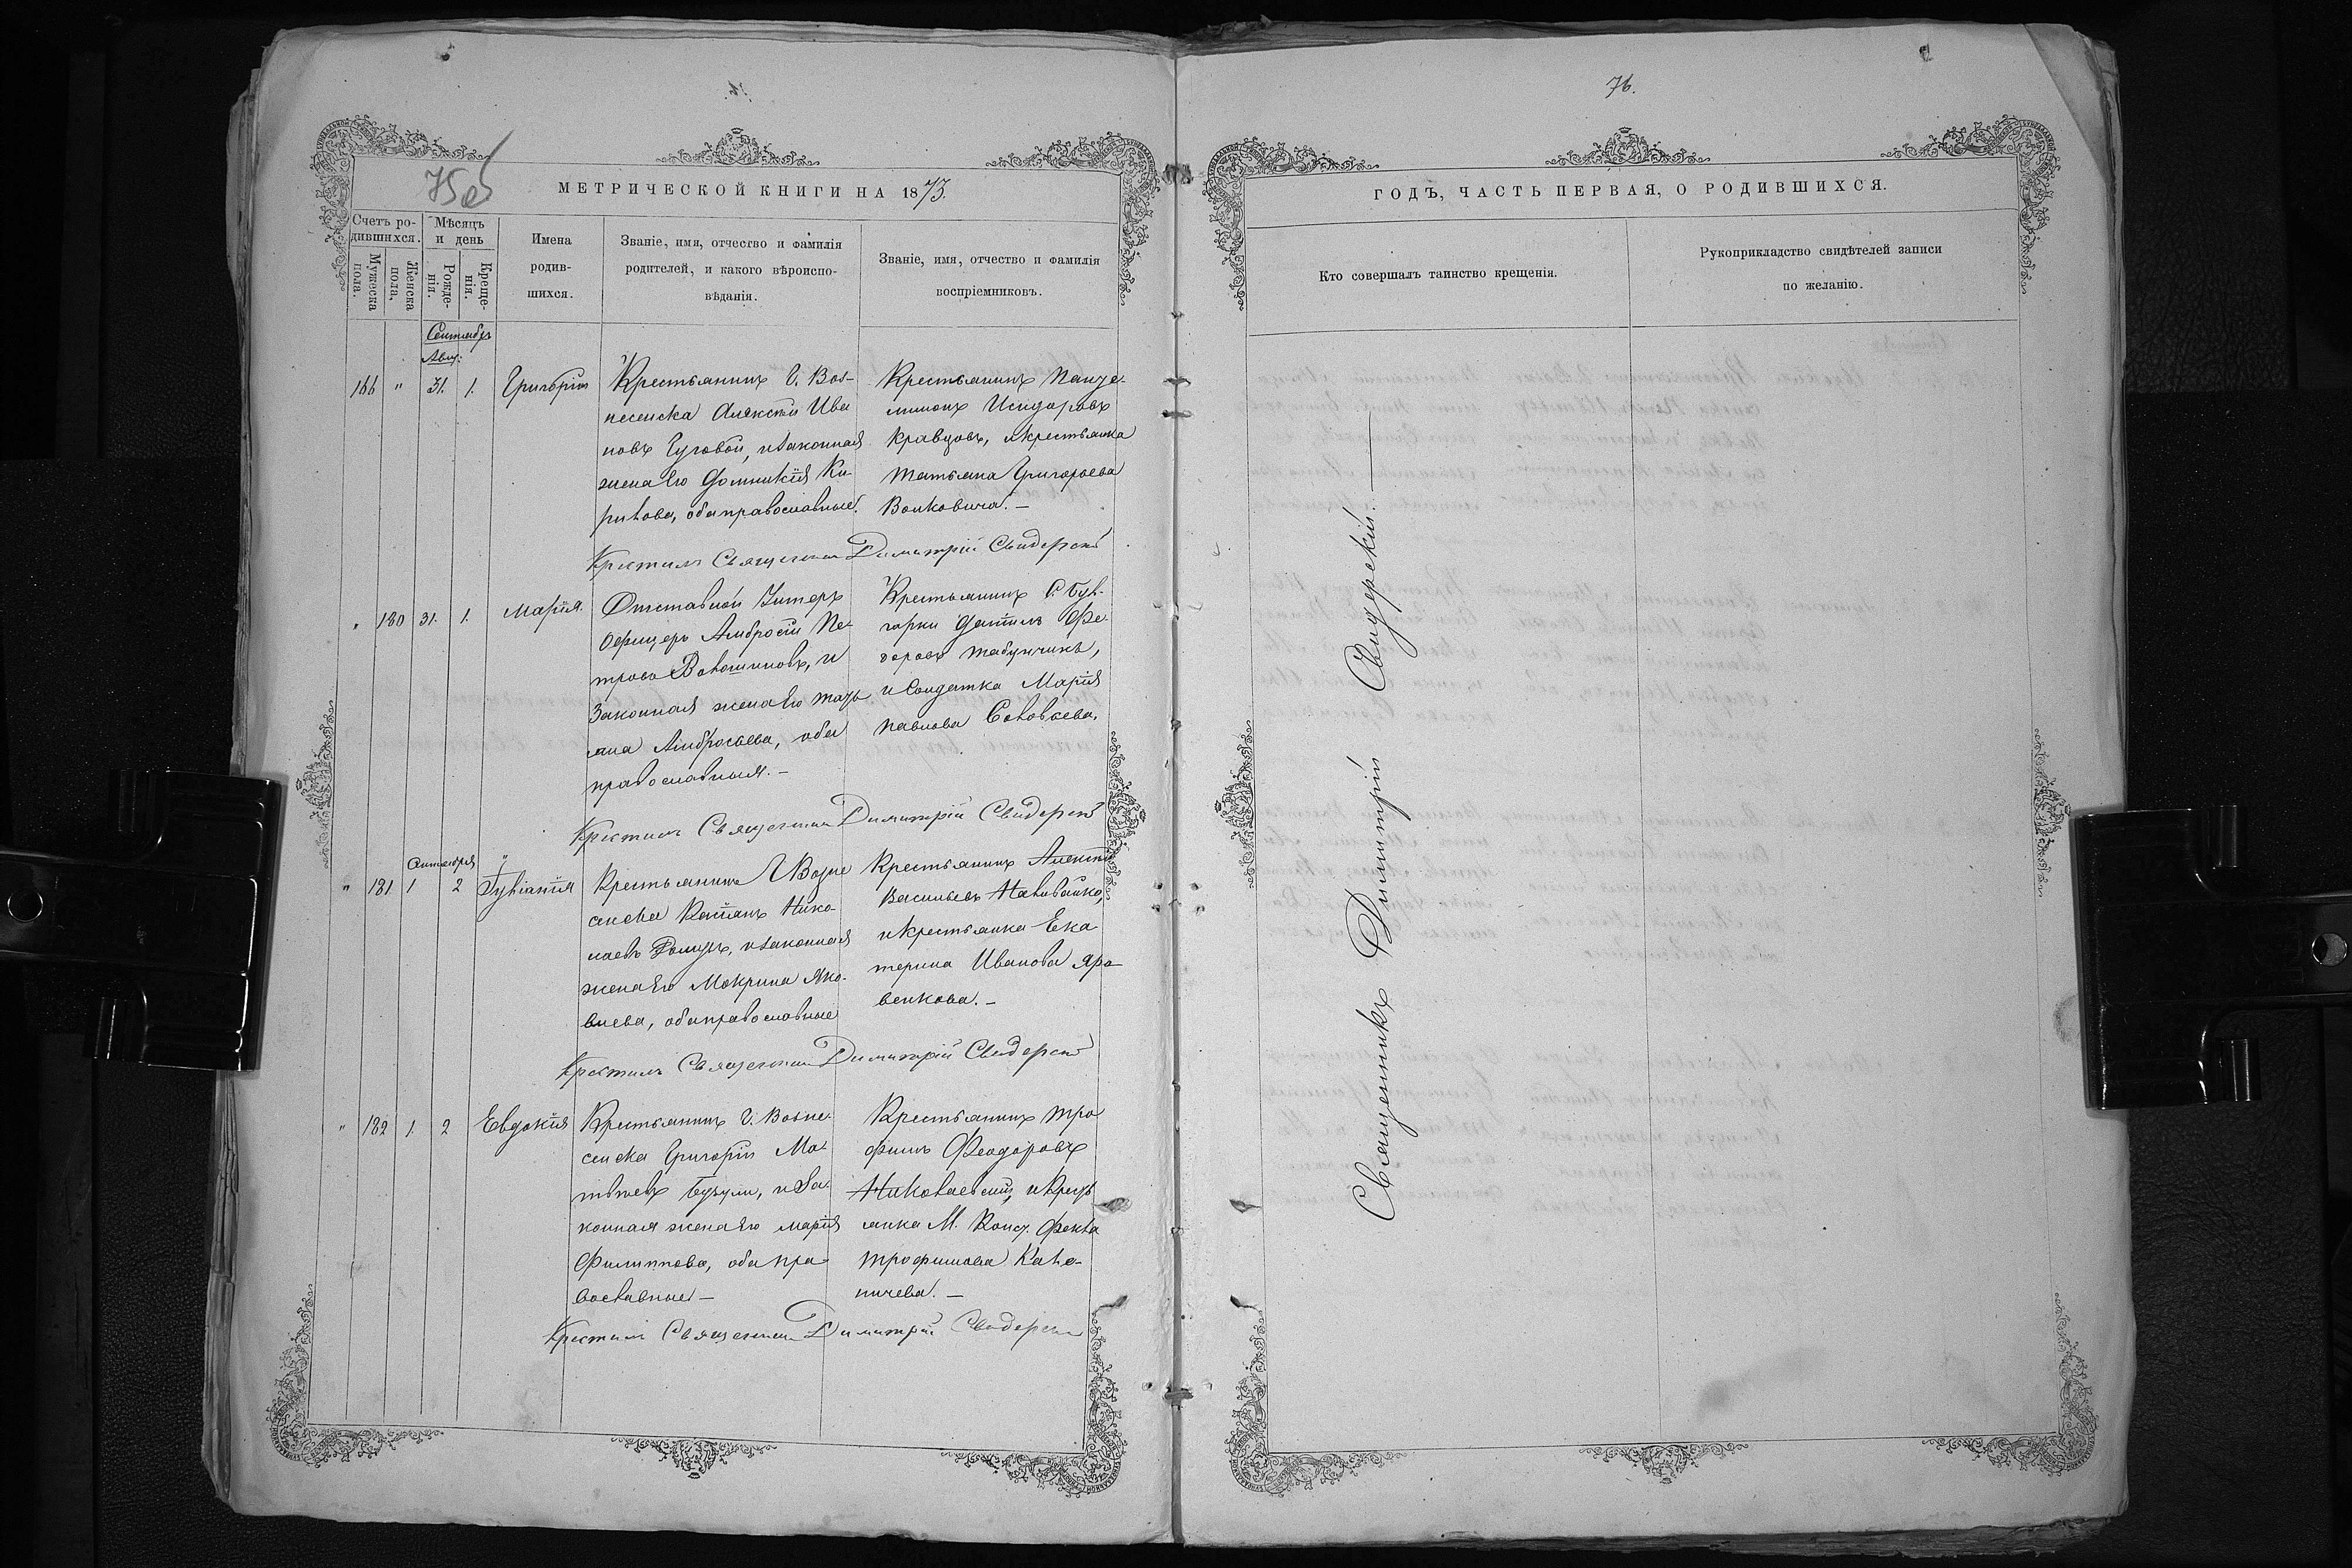 76.
75об
МЕТРИЧЕСКОЙ КНИГИ НА 1873.
Счетъ ро-
дившихся.
Мужеска пола.
Женска пола.
Мѣсяцъ
и день
Рожде-
нія.
Креще-
нія.
Имена
родив-
шихся.
Званіе, имя, отчество и фамилія
родителей, и какого вѣроиспо-
вѣданія.
Званіе, имя, отчество и фамилія
воспріемниковъ.
Сентябрь
Авг:
166 " 31. 1. Григорій
Крестьянинъ Г. Воз-
несенска Алексѣй Ива
новъ Гуговой, и законная
жена его Домникія Ки-
рилова, оба православные.
Крестьянинъ Панте-
лимонъ Исидоровъ
Кравцовъ, и крестьянка
Татьяна Григорьева
Волковича. –
Крестилъ Священникъ Димитрій Свидерскій
" 180 31. 1. Марія.
Отставной Унтеръ
Офицеръ Амвросій Пе-
тровъ Волошиновъ, и
законная жена его Тать
яна Амбросьева, оба
православныя. –
Крестьянинъ С. Бул-
гарки Даніилъ Фе-
доровъ Табунчикъ,
и Солдатка Марія
Павлова Соловьева.
Крестилъ Священникъ Димитрій Свидерскій
Сентября
" 181 1 2 Гулианія
Крестьянинъ Г. Возне
сенска Касіянъ Нико-
лаевъ, и законная
жена его Мокрина Яко-
влева, оба православные
Крестьянинъ Алексѣй
Васильевъ Наливайко,
и крестьянка Ека
терина Иванова Яро-
венкова. –
Крестилъ Священникъ Димитрій Свидерскій
" 182 1. 2 Евдокія
Крестьянинъ Г. Возне-
сенска Григорій Мат-
твѣевъ, и за-
конная жена его Марія
Филиппова, оба пра-
вославные –
Крестьянинъ Тро
фимъ Феодоровъ
Николаевскій, и Крест
янка М. Конст. Фекла
Трофимова Кале-
ничева. –
Крестилъ Священникъ Димитрій Свидерскій
ГОДЪ, ЧАСТЬ ПЕРВАЯ, О РОДИВШИХСЯ.
Кто совершалъ таинство крещенія.
Рукоприкладство свидѣтелей записи
по желанію.
Священникъ Димитрій Свидерскій. –